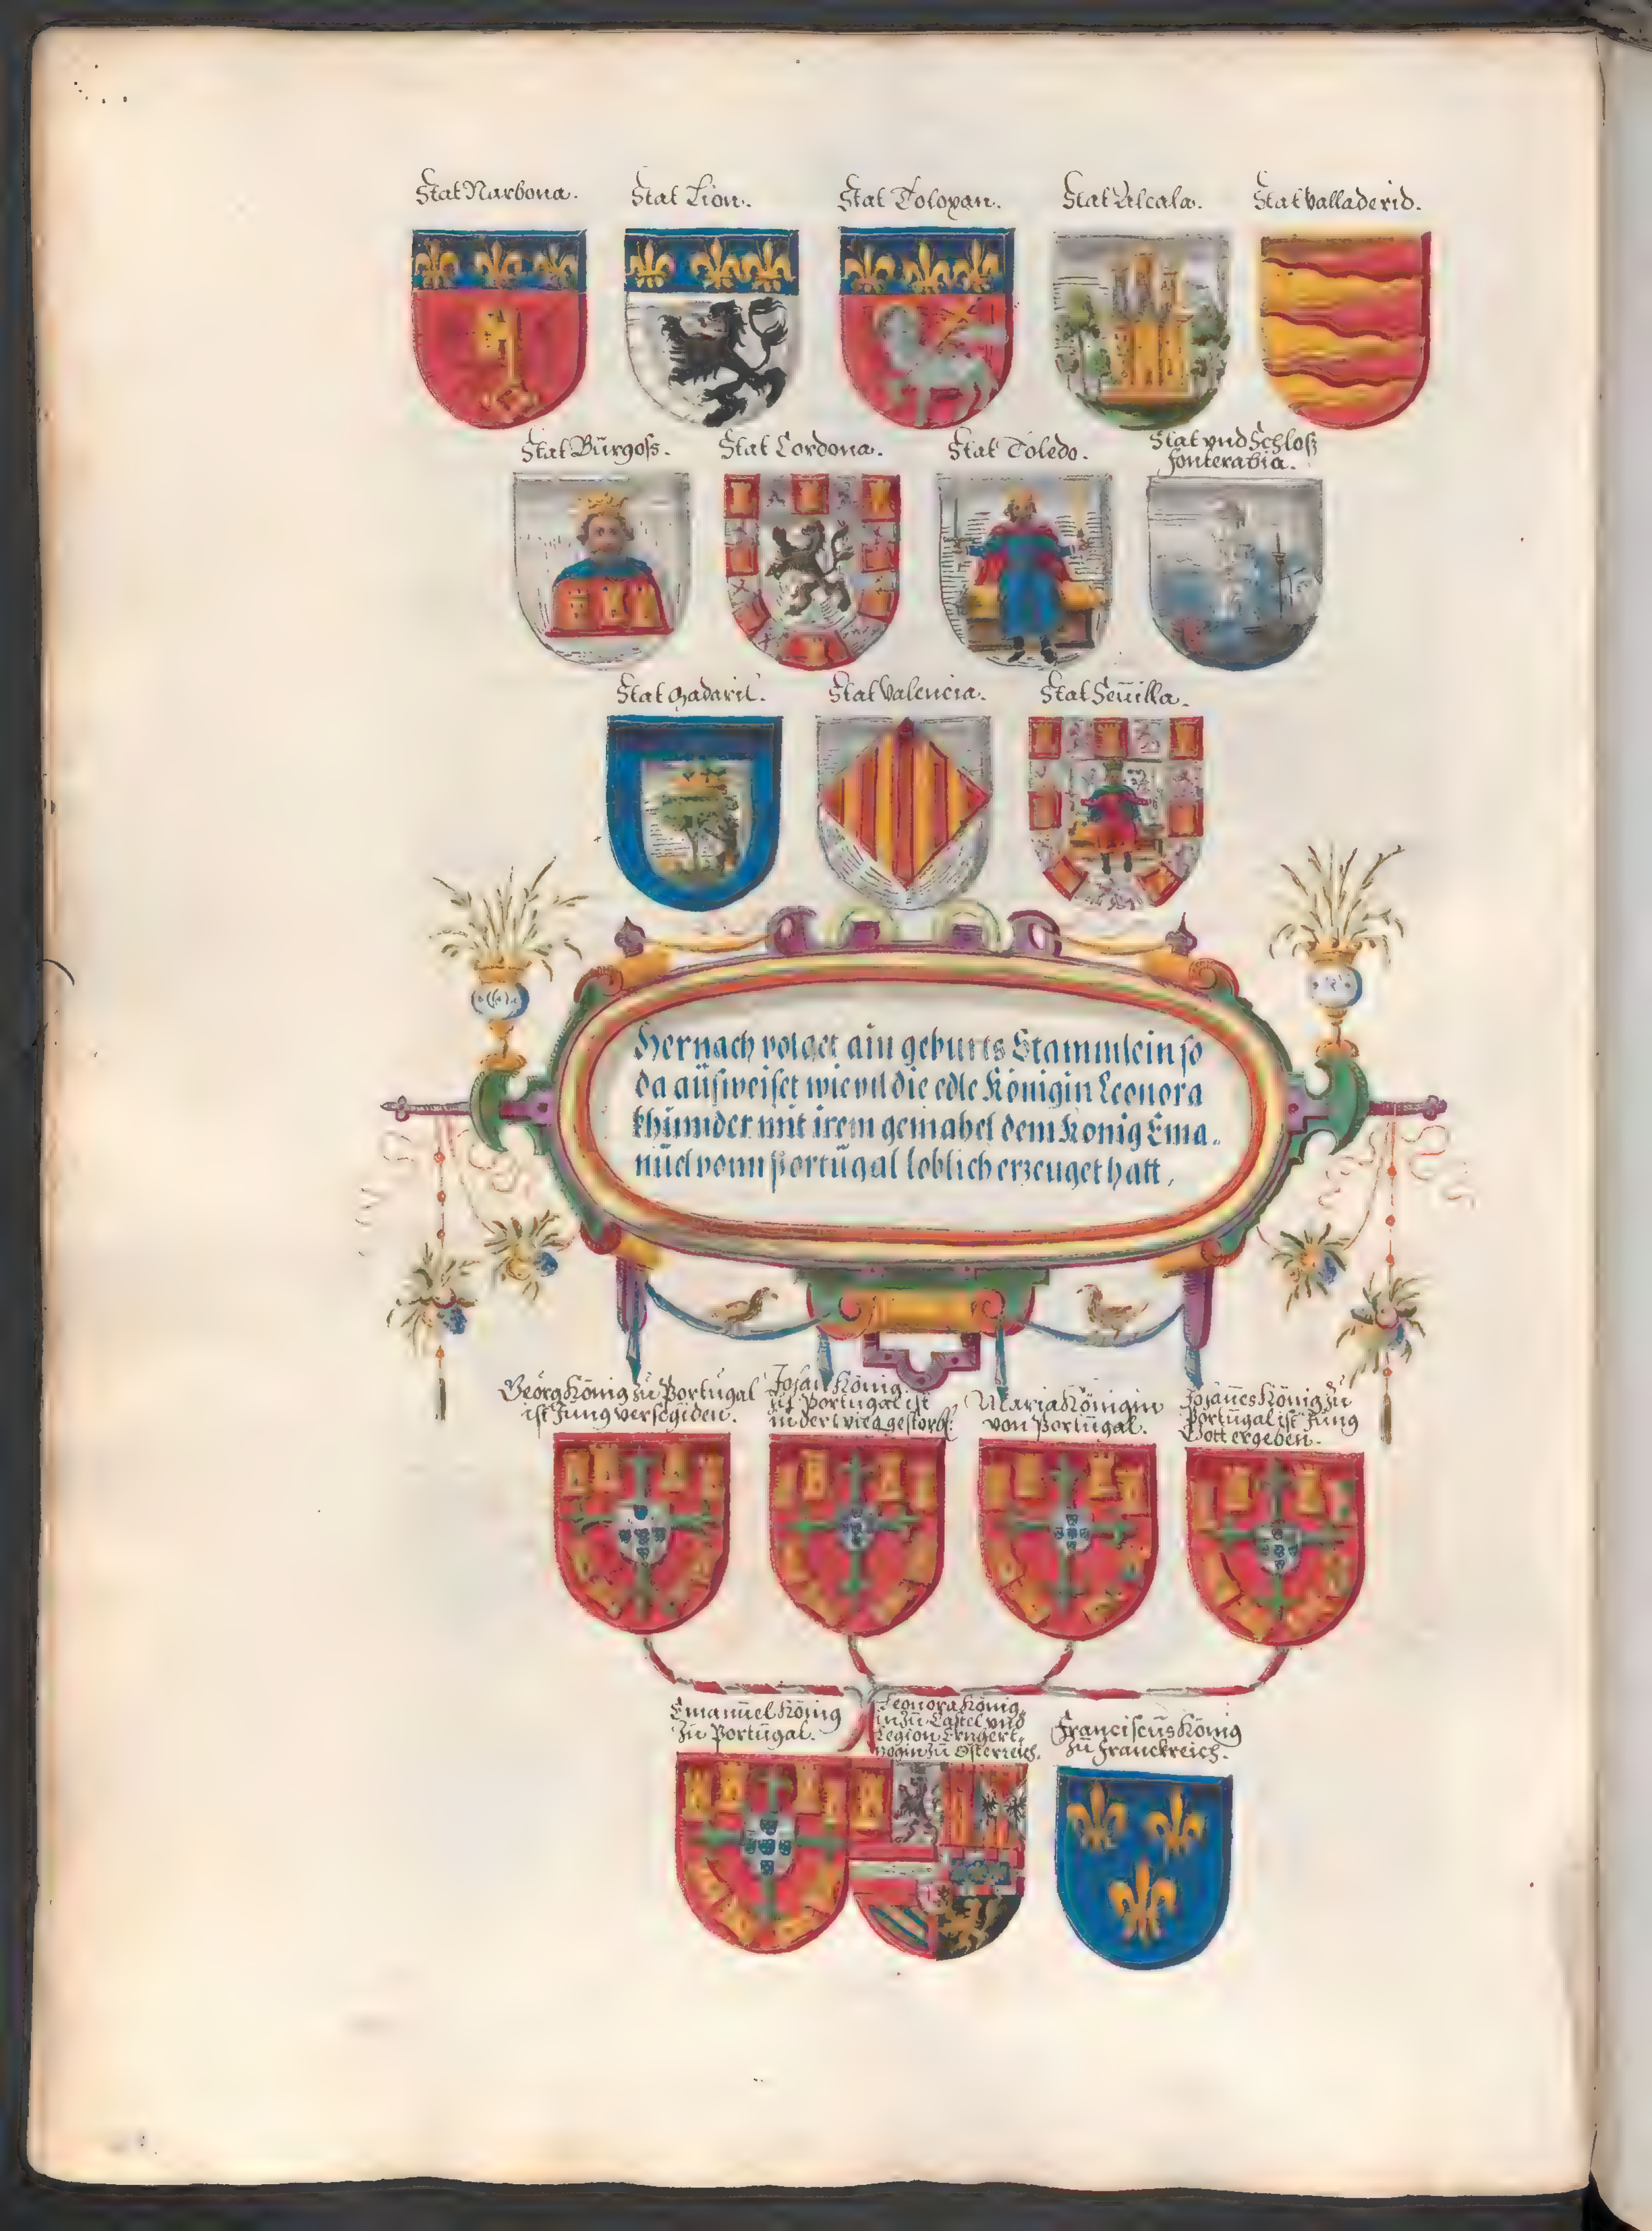 Stat Narbona.
Stat Lion.
Stat Toloxan.
Stat Alcala.
Stat Valladerid.
Stat Bürgoss.
Stat Cordona.
Stat Toledo.
Stat vnd Schloß
fonterabia.
Stat Madaril.
Stat Valencia.
Stat Seuilla.
Hernach volget ain geburts Stammlein so
da aüsweiset wievil die edle Königin Leonora
khinnder mit irem gemahel dem König Ema-
nüel vonn Portügal loblich erzeuget hatt,
Georg König zü Portügal
ist Jung verschiden.
Johan König
zü Portügal ist
in der wieg gestorb:
Maria Königin
von Portügal.
Johannes König zü
Portügal ist Jüng
Gott ergeben.
Emanüel König
zü Portügal.
Leonora König
in zü Castel vnd
Legion Ertzhertz
ogin zü Osterreich.
Franciscüs König
zü Franckreich.